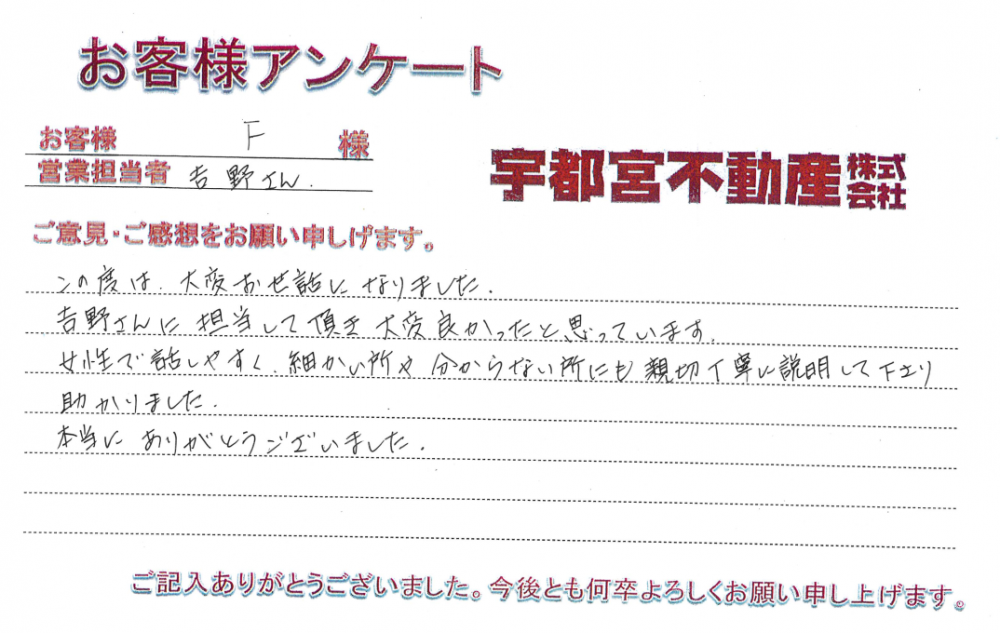 お客様アンケート
お客様 F 様
営業担当者 吉野さん.
宇都宮不動産株式会社
ご意見・ご感想をお願い申しげます。
この度は、大変お世話になりました.
吉野さんに担当して頂き大変良かったと思っています.
女性で話しやすく、細かい所や分からない所にも親切丁寧に説明して下さり
助かりました.
本当にありがとうございました.
ご記入ありがとうございました。今後とも何卒よろしくお願い申し上げます。